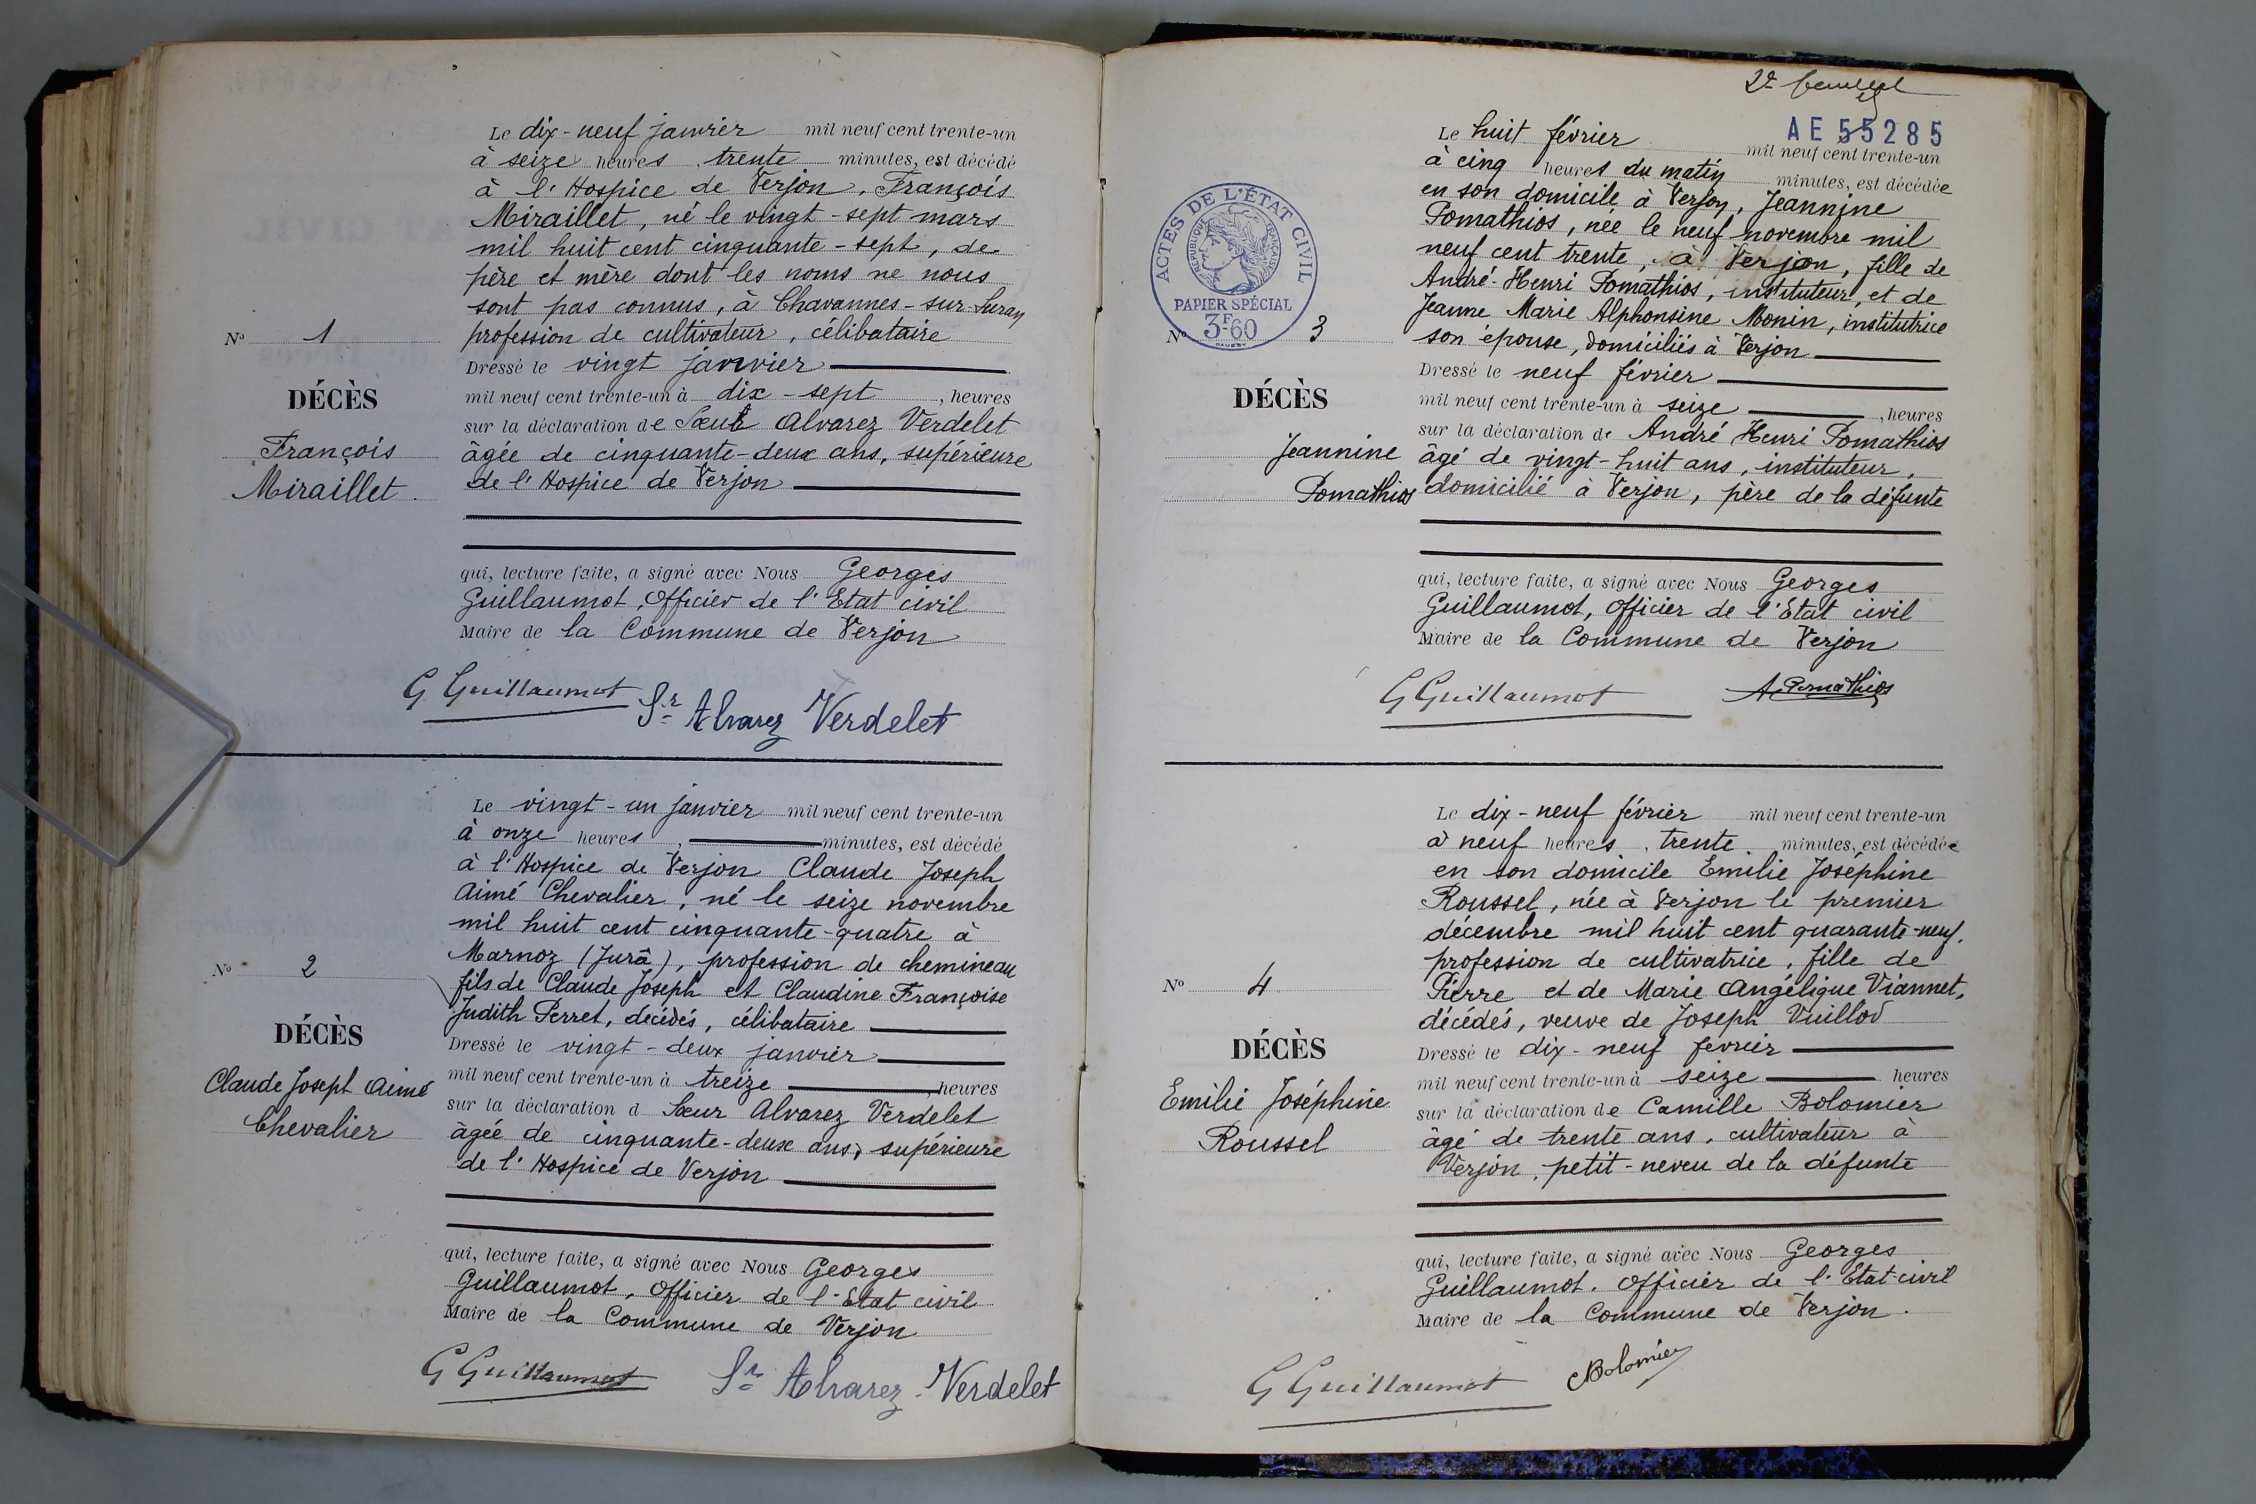 Le dix-neuf janvier mil neuf cent trente-un
à seize heures trente minutes, est décédé
à l'Hospice de Verjon, François
Miraillet, né le vingt-sept mars
mil huit cent cinquante-sept, de
père et mère dont les noms ne nous
sont pas connus, à Chavannes-sur-Suran
profession de cultivateur, célibataire
Dressé le vingt janvier
mil neuf cent trente-un à dix-sept, heures
sur la déclaration de Sœur Alvarez Verdelet
âgée de cinquante-deux ans, supérieure
de l'Hospice de Verjon
qui, lecture faite, a signé avec Nous Georges
Guillaumot, Officier de l'Etat civil
Maire de la Commune de Verjon
G Guillaumot Sr Alvarez Verdelet
No 1
DÉCÈS
François
Miraillet.
Le vingt-un janvier mil neuf cent trente-un
à onze heures, minutes, est décédé
à l'Hospice de Verjon Claude Joseph
Aimé Chevalier, né le seize novembre
mil huit cent cinquante-quatre à
Marnoz (Jura), profession de chemineau
fils de Claude Joseph et Claudine Françoise
Judith Perret, décédés, célibataire
Dressé le vingt-deux janvier
mil neuf cent trente-un à treize, heures
sur la déclaration d Sœur Alvarez Verdelet
âgée de cinquante-deux ans, supérieure
de l'Hospice de Verjon
qui, lecture faite, a signé avec Nous Georges
Guillaumot, Officier de l'Etat civil
Maire de la Commune de Verjon
G Guillaumot Sr Alvarez-Verdelet
No 2
DÉCÈS
Claude Joseph Aimé
Chevalier
2e
AE 55285
Le huit février mil neuf cent trente-un
à cinq heures du matin minutes, est décédée
en son domicile à Verjon, Jeannine
Pomathios, née le neuf novembre mil
neuf cent trente, à Verjon, fille de
André-Henri Pomathios, instituteur, et de
Jeanne Marie Alphonsine Monin, institutrice
son épouse, domiciliés à Verjon
Dressé le neuf février
mil neuf cent trente-un à seize, heures
sur la déclaration de André Henri Pomathios
âgé de vingt-huit ans, instituteur,
domicilié à Verjon, père de la défunte
qui, lecture faite, a signé avec Nous Georges
Guillaumot, Officier de l'Etat civil
Maire de la Commune de Verjon
G Guillaumot A Pomathios
ACTES DE L'ÉTAT CIVIL
RÉPUBLIQUE FRANÇAISE
PAPIER SPÉCIAL
3F60
No 3
DÉCÈS
Jeannine
Pomathios
Le dix-neuf février mil neuf cent trente-un
à neuf heures trente minutes, est décédée
en son domicile Emilie Joséphine
Roussel, née à Verjon le premier
décembre mil huit cent quarante-neuf.
profession de cultivatrice, fille de
Pierre et de Marie Angélique Viannet,
décédés, veuve de Joseph Vuillod
Dressé le dix-neuf février
mil neuf cent trente-un à seize heures
sur la déclaration de Camille Bolomier
âgé de trente ans, cultivateur à
Verjon, petit-neveu de la défunte
qui, lecture faite, a signé avec Nous Georges
Guillaumot. Officier de l'Etat-civil
Maire de la Commune de Verjon.
G Guillaumot CBolomier
No 4
DÉCÈS
Emilie Joséphine
Roussel